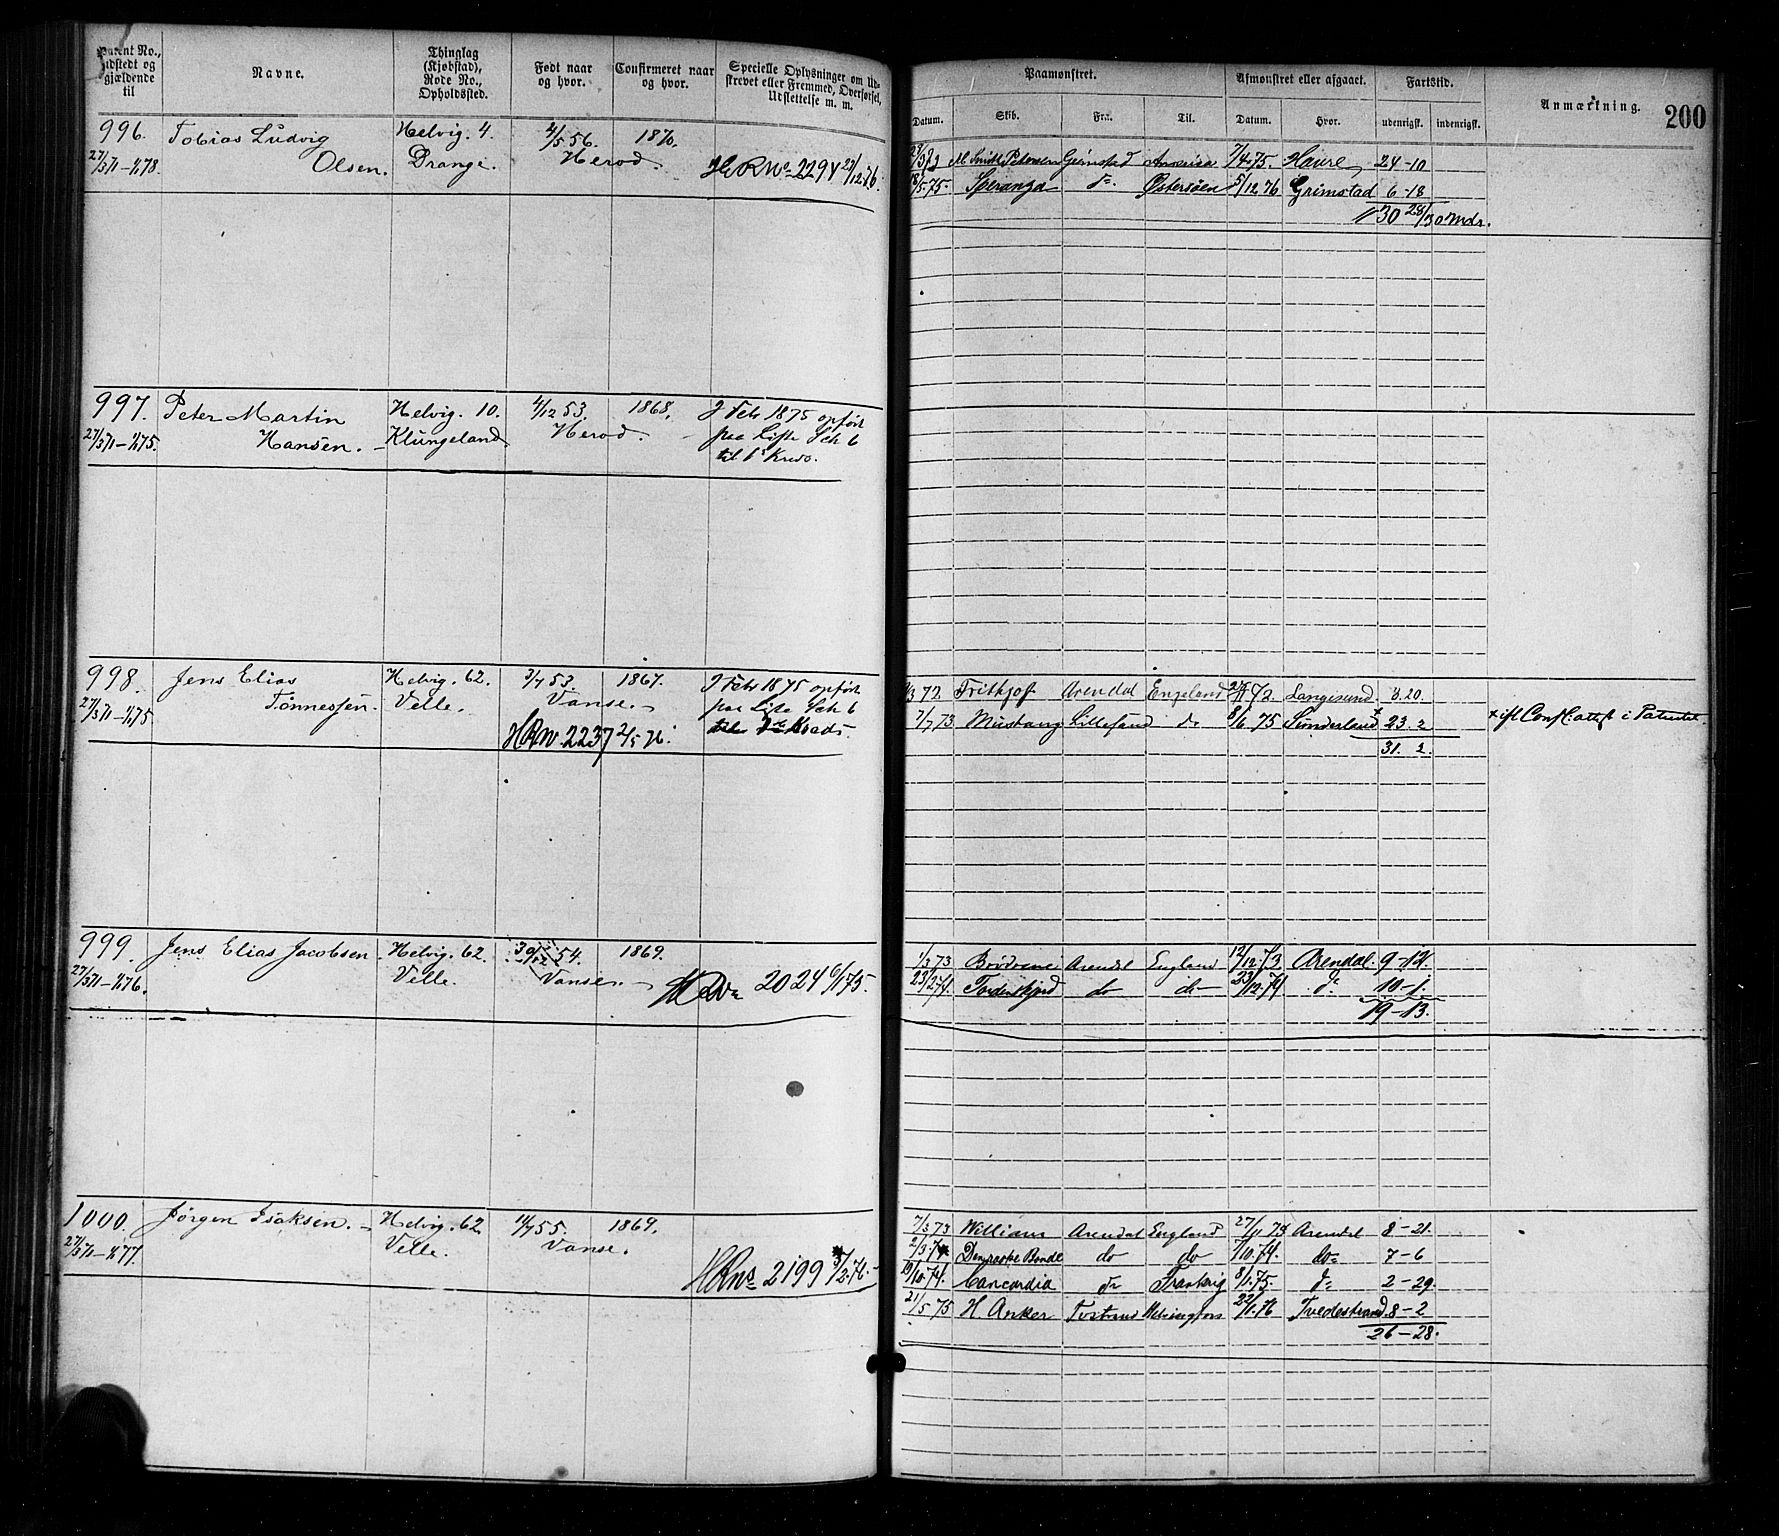 Patent No., udstedt og gjældende til
Navne.
Thinglag (Kjøbstad), Rode No., Opholdssted.
Født naar og hvor.
Confirmeret naar og hvor.
Specielle Oplysninger om Udskrevet eller Fremmed, Overførsel, Udslettelse m. m.
Paamønstret.
Afmønstret eller afgaaet.
Fartstid.
Anmærkning.
200
Datum.
Skib.
Fra.
Til.
Datum.
Hvor.
udenrigsk.
indenrigsk.
996. Tobias Ludvig Helvig. 4. 4/5 56. 1870.
27/3 71 - 1/1 78. Olsen. Drange. Herod. HR No 2294 27/12 76.
M Smith Petersen Grimstad America 7/4 75. Havre 24-10
18/5 75. Speranza do Østersøen 5/12 76 Grimstad 6-18
30 28/30 Mdr.
997. Peter Martin Helvig. 10. 4/12 53. 1868. I Febr 1875 opført
27/3 71 - 1/1 75. Hansen. Klungeland Herod. paa Liste
til
998. Jens Elias Helvig. 62. 3/7 53. 1867. I Febr 1875 opført
27/3 71 - 1/1 75 Tønnessen. Velle. Vanse. paa Liste
HR No 2237 2/5 76.
1/3 72. Frithjof Arendal Engeland Langesund. 8.20.
7/7 73 Mustang Lillesand do 8/6 75 Sunderland 23. 2 x ifl i Patentet.
31. 2.
999. Jens Elias Jacobsen Helvig. 62. 30/12 54. 1869.
27/3 71 - 1/1 76. Velle. Vanse. HR No 2024 6/1 75.
1/3 73 Arendal England 12/12 73 Arendal. 9-12.
23/2 74. Tordenskjold do do 23/12 74 do 10-1.
19-13.
1000. Jørgen Isaksen. Helvig. 62 1869.
27/3 71 - 1/1 77. Velle. Vanse.
HR No 2199 3/2 76.
7/3 73 William Arendal England 27/11 73 Arendal 8-21.
2/3 74 Bonde do do 7/10 74. do 7-6
19/10 74. Concordia do Frankrig 8/1 75. do 2-29.
21/5 75 H Anker Helsingfors 22/1 76 Tvedestrand. 8-2
26-28.